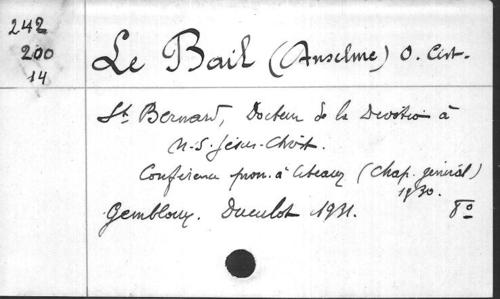 242
200
14
Le Bail (Anselme) O. Cist.
St Bernard, Docteur de la Dévotion à
N-S. Jésus-Christ.
Conférence pron. à Citeaux (Chap. général)
1930.
Gembloux. Duculot 1931. 8º